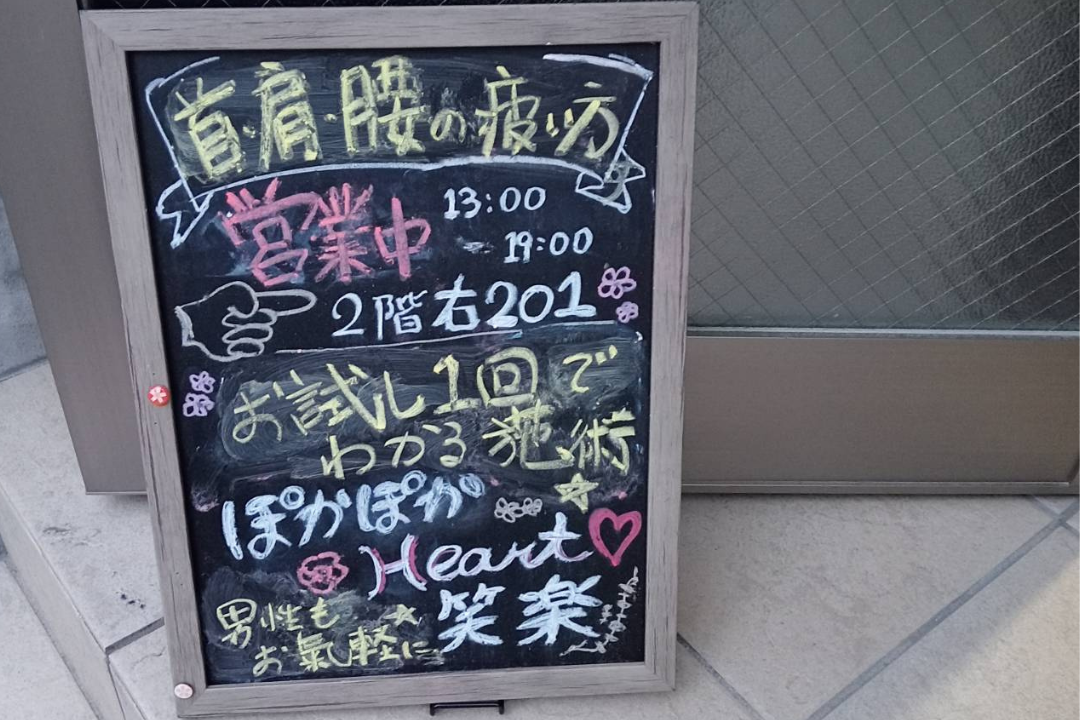 首・肩・腰の疲い方
営業中 13:00
~ 19:00
2階右201
お試し1回で
わかる施術
ぽかぽか
Heart
笑楽
男性も
お氣軽に